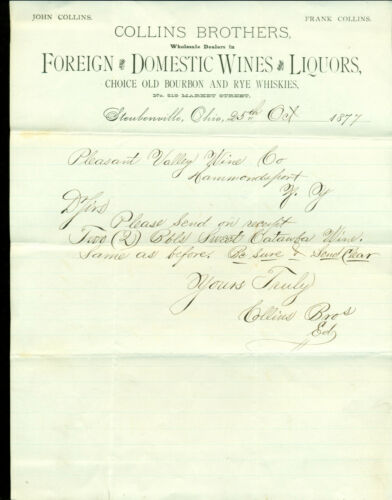 JOHN COLLINS. FRANK COLLINS.
COLLINS BROTHERS,
Wholesale Dealers in
FOREIGN AND DOMESTIC WINES AND LIQUORS,
CHOICE OLD BOURBON AND RYE WHISKIES,
No. 219 MARKET STREET.
Steubenville, Ohio, 25th Oct 1877
Pleasant Valley Wine Co
Hammondsport
N. Y
D Sirs
Please Send on receipt
Two (2) Bbls Sweet Catawba Wine.
Same as before. Be Sure & Send Clear
Yours Truly
Collins Bros
Ed